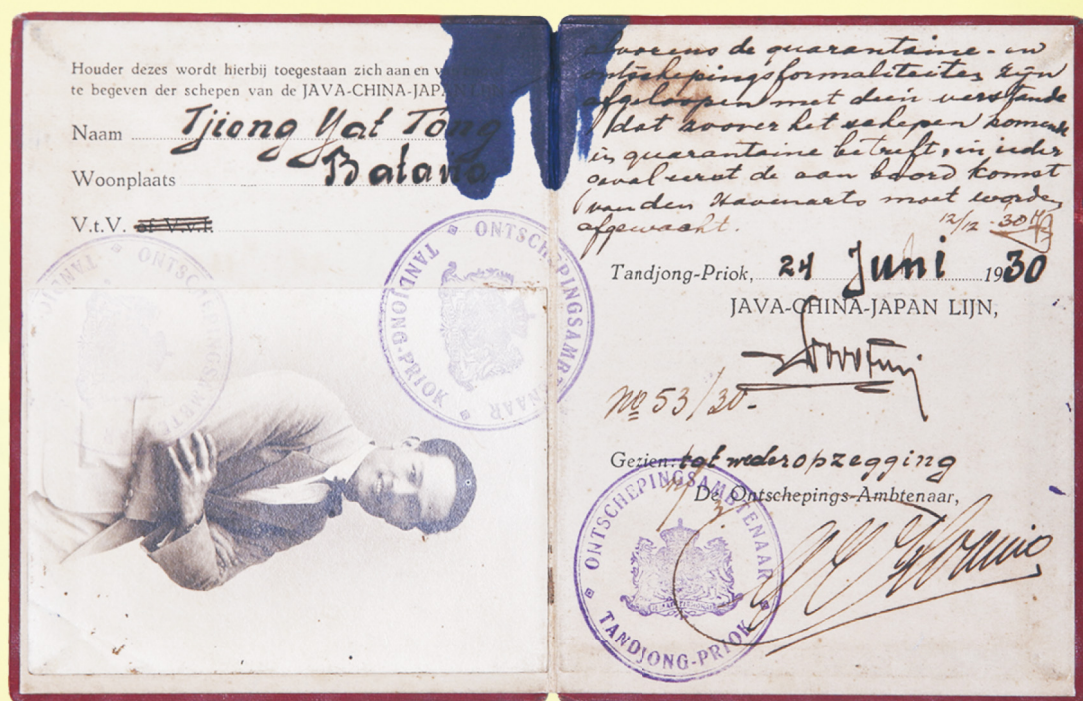 Houder dezes wordt hierbij toegestaan zich aan en v
te begeven der schepen van de JAVA-CHINA-JAPAN LIJN
Naam Tjiong Yat Tong
Woonplaats Batavia
V.t.V. of V.v.I.
ONTSCHEPINGSAMBTENAAR
TANDJONG-PRIOK
ONTSCHEPINGSAMBTENAAR
TANDJONG-PRIOK
alvorens de quarantaine- en
ontschepingsformaliteiten zijn
afgeloopen met dien verstande
dat zoover het schepen komende
in quarantaine betreft, in ieder
geval eerst de aan boord komst
van den Havenarts moet worden
afgewacht.
12/12 - 30
Tandjong-Priok, 24 Juni 1930
JAVA-CHINA-JAPAN LIJN,
No 53/30-
Gezien: tot wederopzegging
De Ontschepings-Ambtenaar,
ONTSCHEPINGSAMBTENAAR
TANDJONG-PRIOK